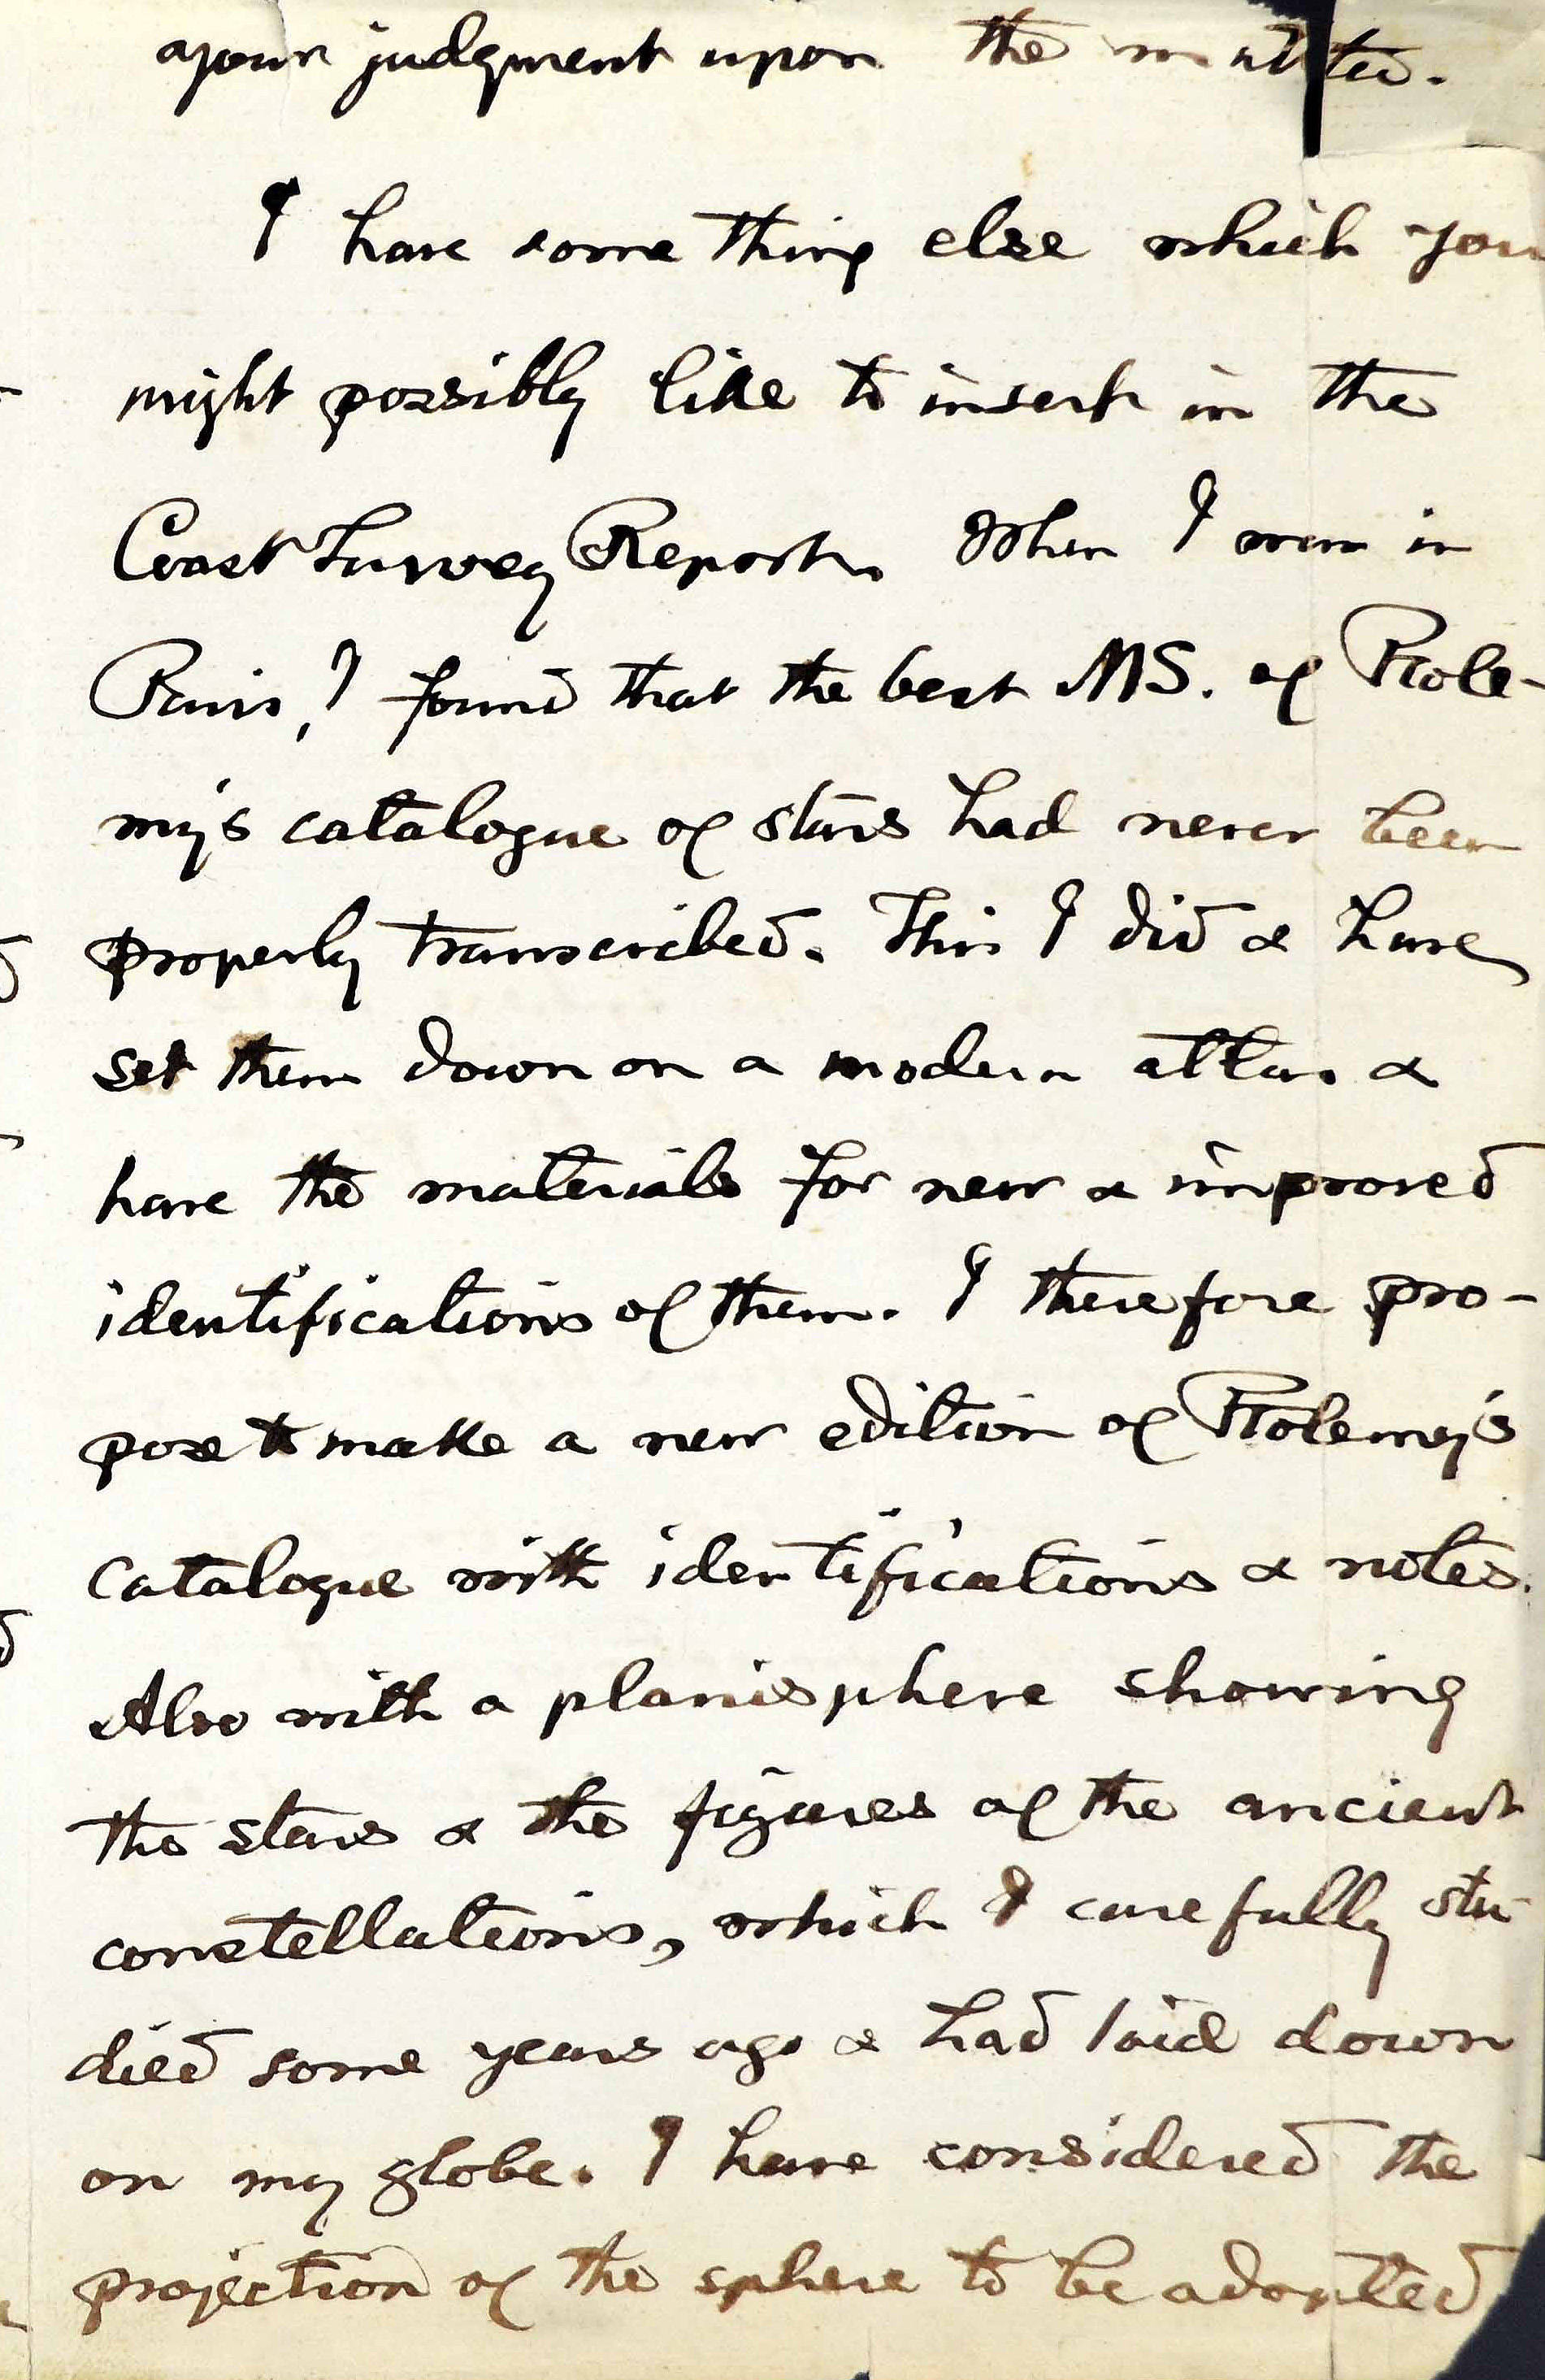 your judgment upon the matter.
I have some thing else which you
might possibly like to insert in the
Coast Survey Report. When I was in
Paris, I found that the best MS. of Ptole-
my's catalogue of stars had never been
properly transcribed. This I did & have
set them down on a modern atlas &
have the materials for new & improved
identifications of them. I therefore pro-
pose to make a new edition of Ptolemy's
Catalogue with identifications & notes.
Also with a planisphere showing
the stars & the figures of the ancient
constellations, which I carefully stu-
died some years ago & had laid down
on my globe. I have considered the
projection of the sphere to be adopted